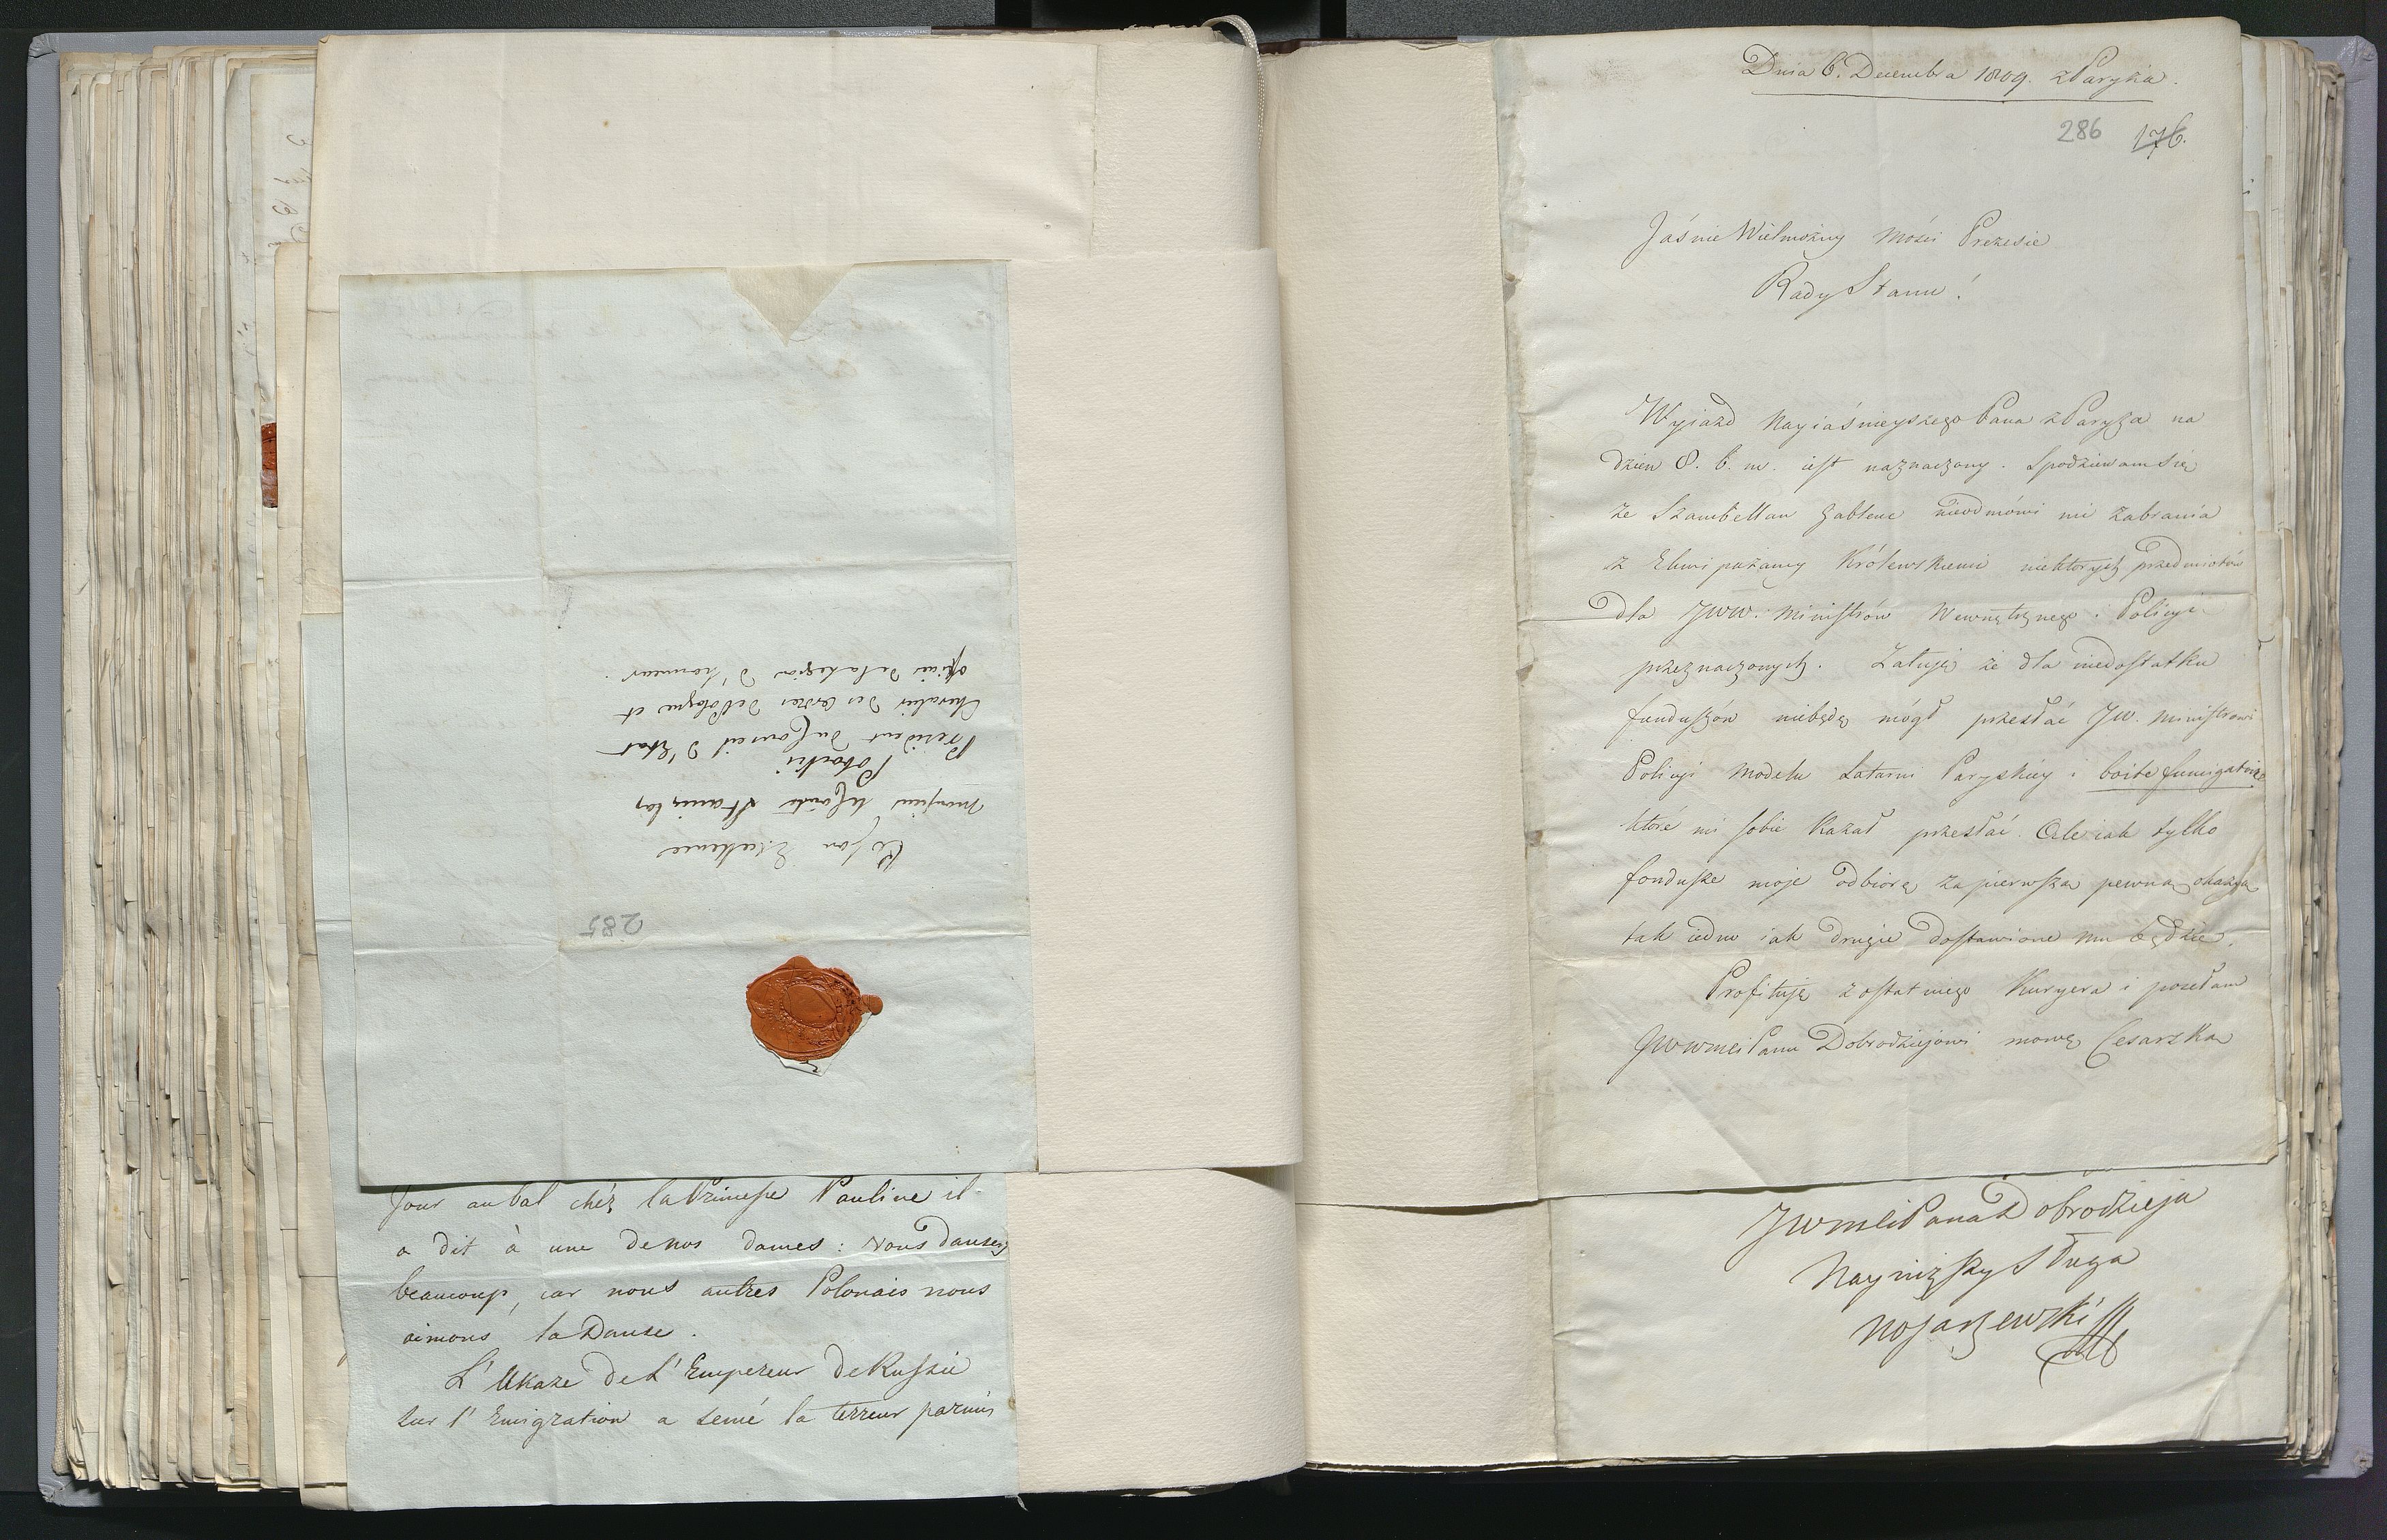 285
A Son Excellence
Monsieur le Comte Stanislas
Potocki
President du Conseil d'Etat
Chevalier des ordres de Pologne et
officier de la Legion d'honneur.
Jour au bal chéz la Princesse Pauline il
a dit à une de nos dames: vous dansez
beaucoup, car nous autres Polonais nous
aimons la Danse.
L'Ukaze de L'Empereur de Russie
sur l'Emigration a semé la terreur parmis
Dnia 6. Decembra 1809. z Paryża.
286 176.
Jáśnie Wielmożny Mości Prezesie
Rady Stanu!
Wyiazd Nayiaśnieyszego Pana z Paryża na
dzien 8. b. m. iest naznaczony. Spodziewam się
że Szambellan Gablenc nieodmówi mi zabrania
z Ekwipażamy Królewskiemi niektorych przedmiotów
dla JWW. Ministrów Wewnętrznego i Policyi
przeznaczonych. Załuję że dla niedostatku
funduszów niebędę mógł przesłać JW. Ministrowi
Policyi modelu Latarni Paryskiey i boite fumigatoire
które mi sobie kazał przesłać. Ale iak tylko
fondusze moje odbiorę za pierwszą pewną okazyą
tak iedno iak drugie dostawione mu będzie.
Profituję z ostatniego Kuryera i posełam
JWWMci Panu Dobrodziejowi mowę Cesarską
JWMci Pana Dobrodzieja
Nayniższy Sługa